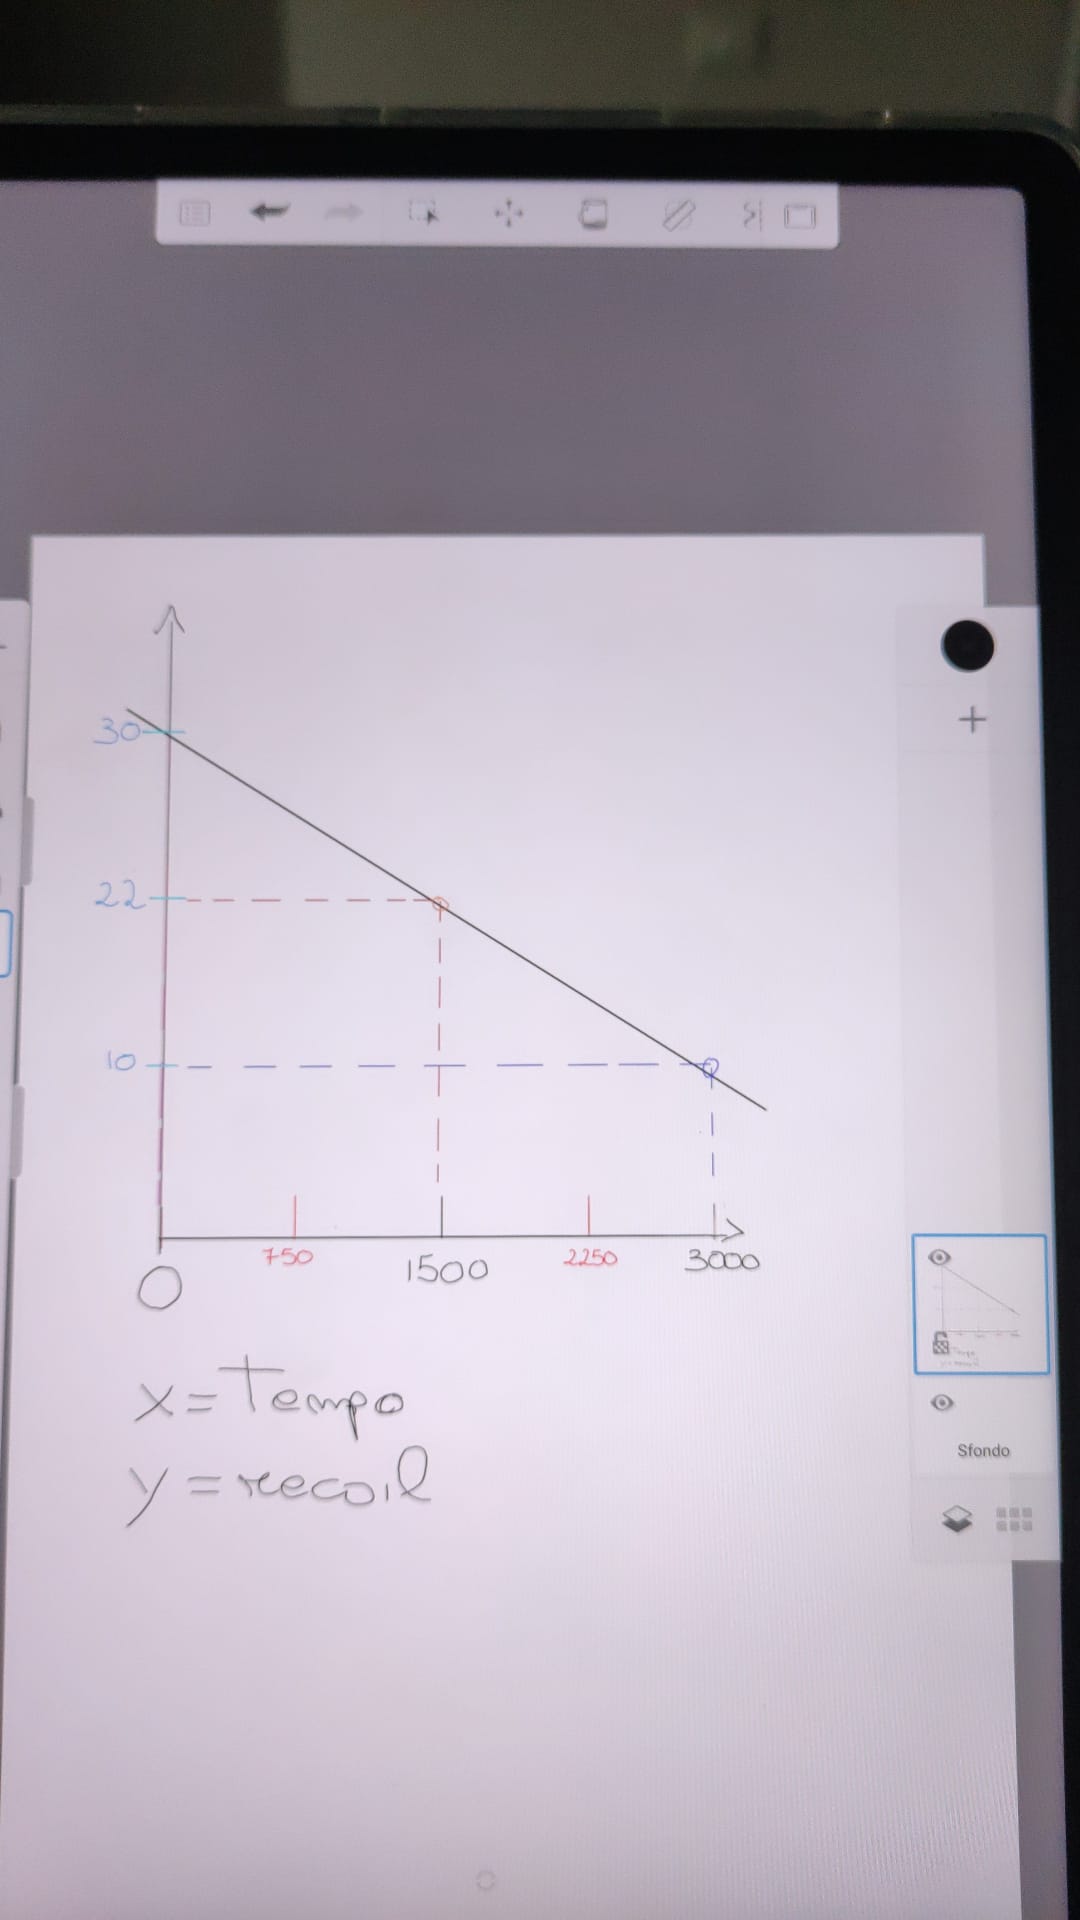 30
22
10
750
2250
0
1500
3000
x = Tempo
y = recoil
Sfondo